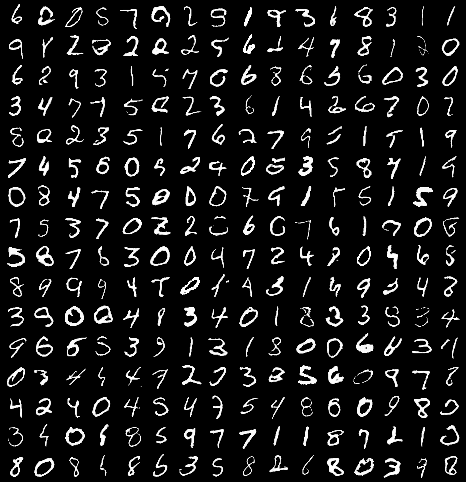 6 0 0 5 7 0 2 5 1 9 3 1 8 3 1 1
9 1 2 0 2 2 2 5 6 1 4 7 8 1 2 0
6 2 9 3 1 5 7 0 6 8 6 5 6 0 3 0
3 4 7 7 5 2 2 3 6 1 4 2 6 7 0 7
8 2 2 3 5 1 7 6 2 7 9 5 1 5 1 9
7 4 5 6 0 5 2 4 0 5 3 5 8 7 1 9
0 8 4 7 5 0 0 0 7 9 1 5 5 1 5 9
7 5 3 7 0 2 2 0 6 0 7 6 1 7 0 8
5 8 7 6 3 0 0 9 7 2 4 8 0 4 6 8
8 9 9 9 4 5 0 1 4 3 1 4 9 3 4 8
3 9 0 0 4 9 3 4 0 1 8 3 3 8 3 4
9 6 5 5 3 9 1 3 1 8 0 0 6 8 3 4
0 3 4 4 4 7 2 7 3 8 5 6 0 9 7 8
4 2 4 0 4 5 4 7 5 4 8 6 0 9 8 0
3 4 0 8 8 5 9 7 7 1 1 8 7 1 1 0
8 0 8 4 8 5 3 5 8 2 6 8 0 3 9 8